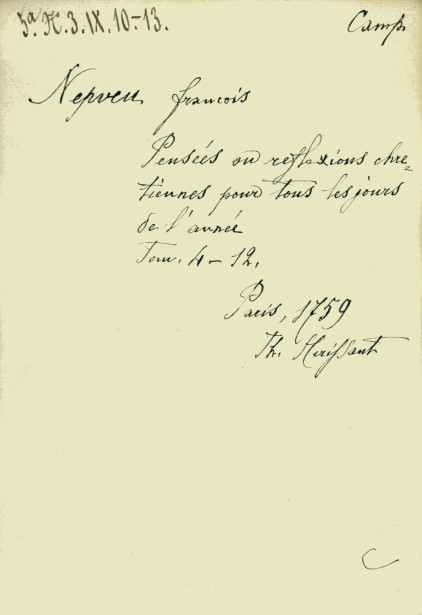 5ª. H. 3. IX. 10-13.
Camp.
Nepveu francois
Pensées ou reflexions chre=
tiennes pour tous les jours
de l'année
Tom. 4 - 12.
Paris, 1759
Th. Herissant